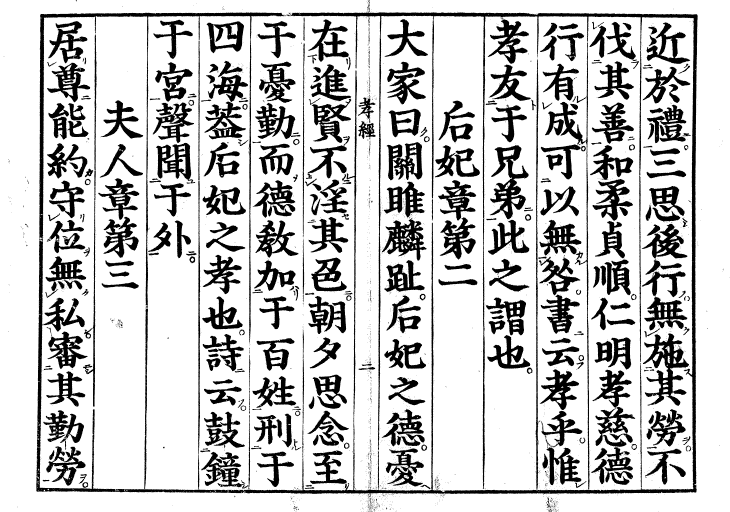 近於禮三思後行無施其勞不
伐其善和柔貞順仁明孝慈德
行有成可以無咎書云孝乎惟
孝友于兄弟此之謂也
后妃章第二
大家曰關雎麟趾后妃之德憂
孝經
二
在進賢不淫其色朝夕思念至
于憂勤而德敎加于百姓刑于
四海葢后妃之孝也詩云鼓鐘
于宮聲聞于外
夫人章第三
居尊能約守位無私審其勤勞